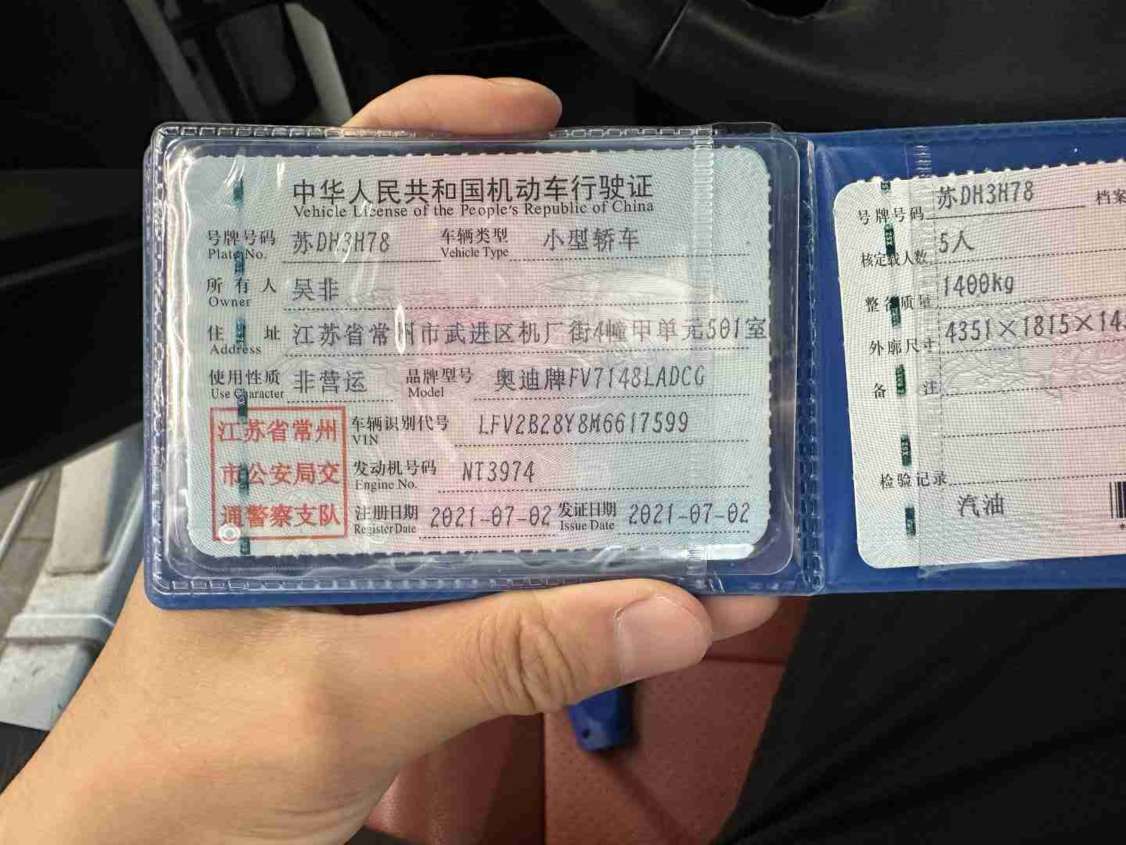 中华人民共和国机动车行驶证
Vehicle License of the People's Republic of China
号牌号码 苏DH3H78 车辆类型 小型轿车
Plate No. Vehicle Type
所有人 吴非
Owner
住址 江苏省常州市武进区机厂街4幢甲单元501室
Address
使用性质 非营运 品牌型号 奥迪牌FV7148LADCG
Use Character Model
江苏省常州
市公安局交
通警察支队
车辆识别代号 LFV2B28Y8M6617599
VIN
发动机号码 NT3974
Engine No.
注册日期 2021-07-02 发证日期 2021-07-02
Register Date Issue Date
号牌号码 苏DH3H78 档案
核定载人数 5人
整备质量 1400kg
外廓尺寸 4351×1815×14
备注
检验记录
汽油